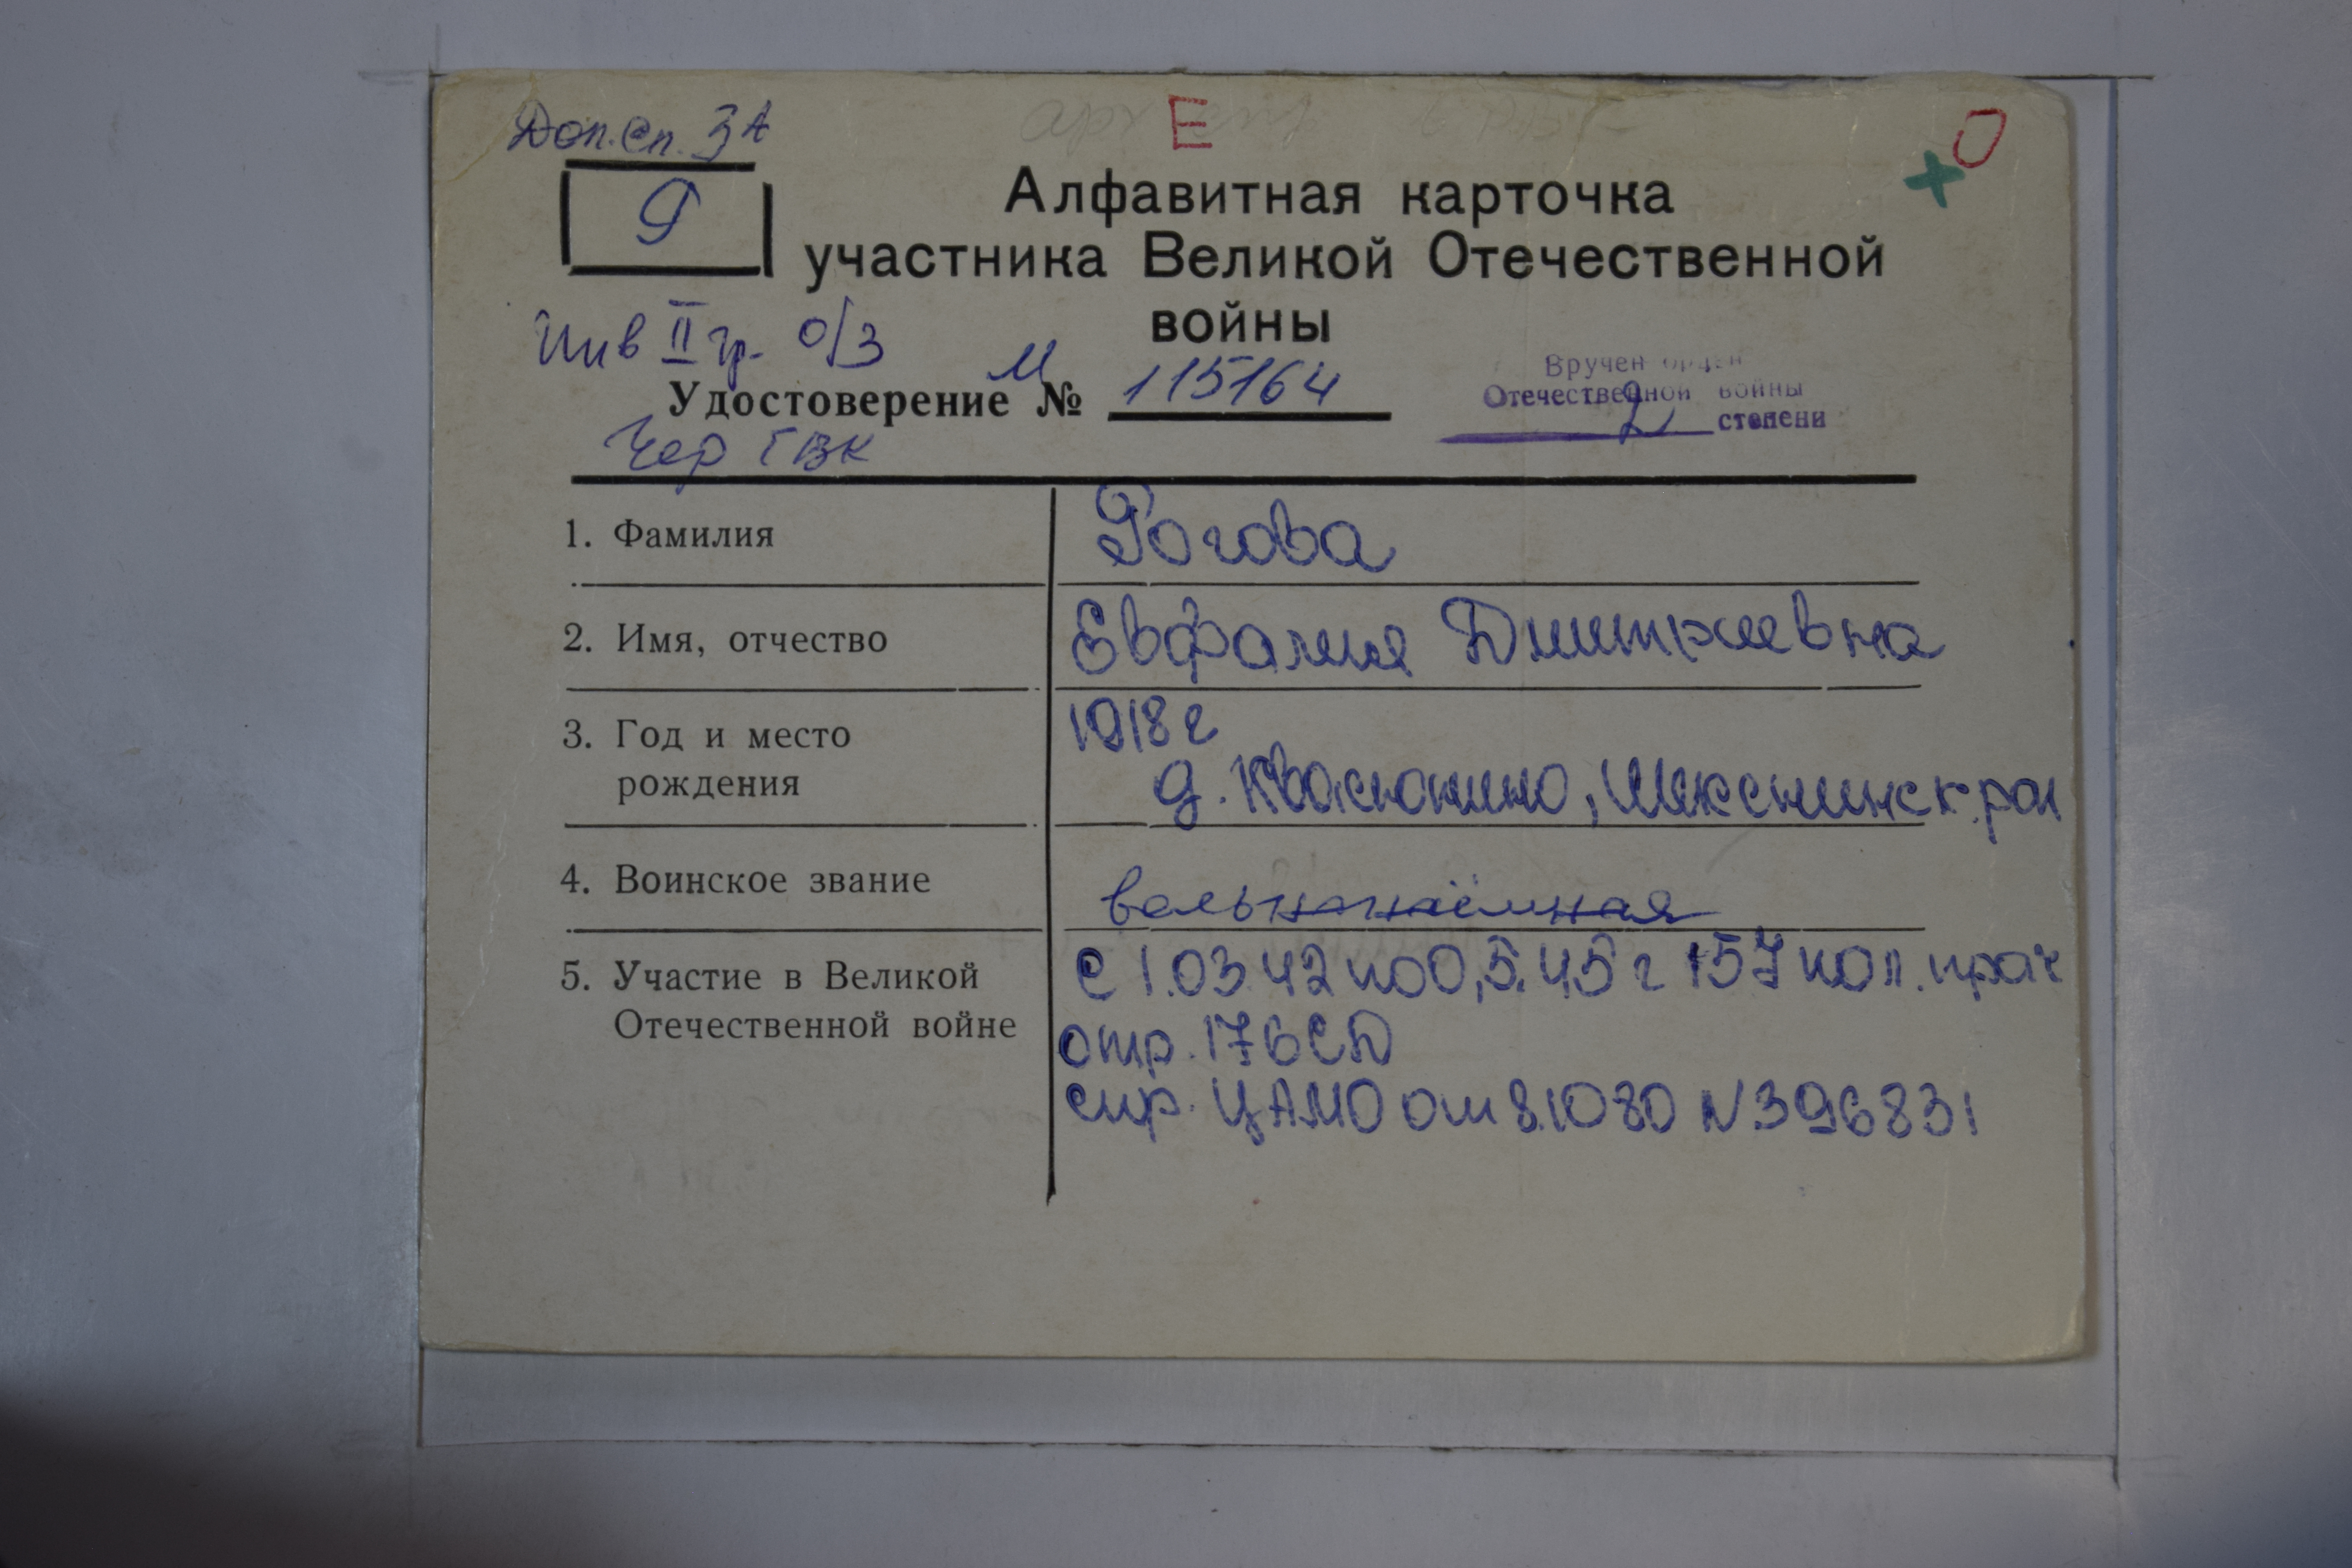 Доп.сп. 3А
Е
О
+
Р
Алфавитная карточка
участника Великой Отечественной
войны
Инв II гр. о/з
М
Удостоверение № 115164
Вручен орден
Отечественной войны
2 степени
Чер ГВК
1. Фамилия Рогова
2. Имя, отчество Евфалия Дмитриевна
3. Год и место 1918 г
рождения д. Квасюнино, Шекснинск. рай
4. Воинское звание вольнонаёмная
5. Участие в Великой с 1.03.42 по 0,5.45 г 157 пол. прач
Отечественной войне отр. 176 СД
спр. ЦАМО от 8.10 80 N 396831